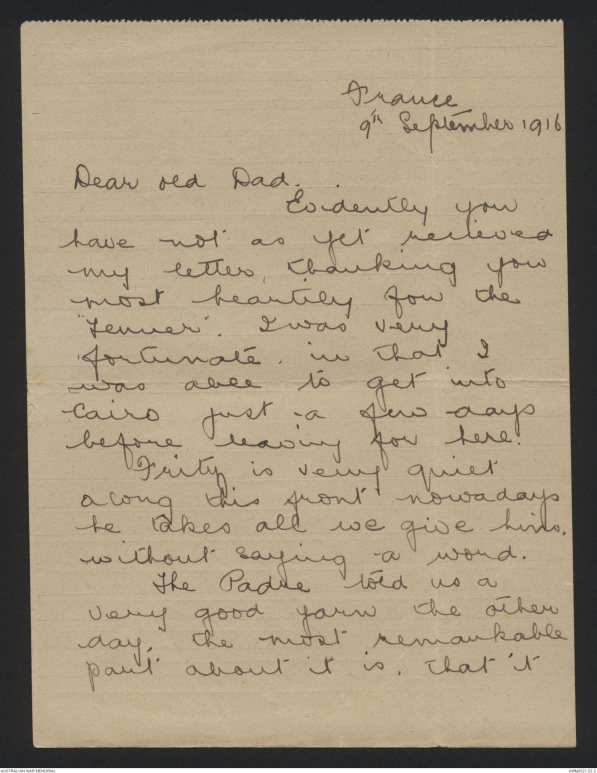 France
9th September 1916
Dear old Dad.
Evidently you
have not as yet recieved
my letter, thanking you
most heartily for the
"Tenner". I was very
fortunate. in that I
was able to get into
Cairo just a few days
before leaving for here.
Frity is very quiet
along this front nowadays
he takes all we give him,
without saying a word.
The Padre told us a
very good yarn the other
day, the most remarkable
part about it is, that it
AUSTRALIAN WAR MEMORIAL